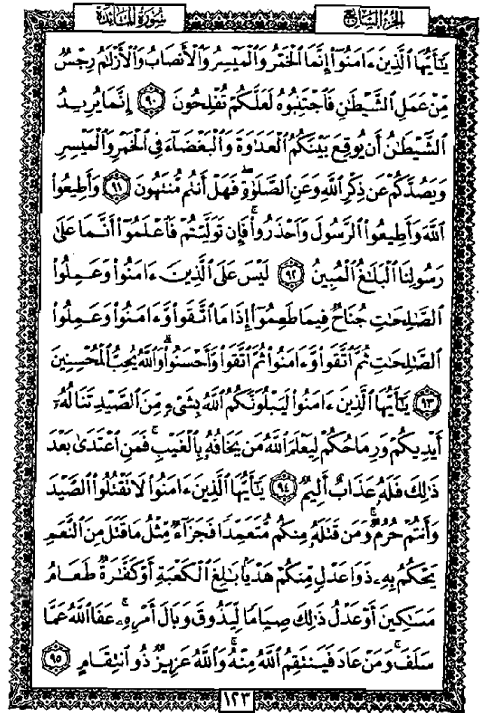 سُورَةُ المَائِدَةِ
الجُزءُ السَّابِعُ
يَٰٓأَيُّهَا ٱلَّذِينَ ءَامَنُوٓا۟ إِنَّمَا ٱلْخَمْرُ وَٱلْمَيْسِرُ وَٱلْأَنصَابُ وَٱلْأَزْلَٰمُ رِجْسٌ
مِّنْ عَمَلِ ٱلشَّيْطَٰنِ فَٱجْتَنِبُوهُ لَعَلَّكُمْ تُفْلِحُونَ ٩٠ إِنَّمَا يُرِيدُ
ٱلشَّيْطَٰنُ أَن يُوقِعَ بَيْنَكُمُ ٱلْعَدَٰوَةَ وَٱلْبَغْضَآءَ فِى ٱلْخَمْرِ وَٱلْمَيْسِرِ
وَيَصُدَّكُمْ عَن ذِكْرِ ٱللَّهِ وَعَنِ ٱلصَّلَوٰةِ ۖ فَهَلْ أَنتُم مُّنتَهُونَ ٩١ وَأَطِيعُوا۟
ٱللَّهَ وَأَطِيعُوا۟ ٱلرَّسُولَ وَٱحْذَرُوا۟ ۚ فَإِن تَوَلَّيْتُمْ فَٱعْلَمُوٓا۟ أَنَّمَا عَلَىٰ
رَسُولِنَا ٱلْبَلَٰغُ ٱلْمُبِينُ ٩٢ لَيْسَ عَلَى ٱلَّذِينَ ءَامَنُوا۟ وَعَمِلُوا۟
ٱلصَّٰلِحَٰتِ جُنَاحٌ فِيمَا طَعِمُوٓا۟ إِذَا مَا ٱتَّقَوا۟ وَّءَامَنُوا۟ وَعَمِلُوا۟
ٱلصَّٰلِحَٰتِ ثُمَّ ٱتَّقَوا۟ وَّءَامَنُوا۟ ثُمَّ ٱتَّقَوا۟ وَّأَحْسَنُوا۟ ۗ وَٱللَّهُ يُحِبُّ ٱلْمُحْسِنِينَ
٩٣ يَٰٓأَيُّهَا ٱلَّذِينَ ءَامَنُوا۟ لَيَبْلُوَنَّكُمُ ٱللَّهُ بِشَىْءٍ مِّنَ ٱلصَّيْدِ تَنَالُهُۥٓ
أَيْدِيكُمْ وَرِمَاحُكُمْ لِيَعْلَمَ ٱللَّهُ مَن يَخَافُهُۥ بِٱلْغَيْبِ ۚ فَمَنِ ٱعْتَدَىٰ بَعْدَ
ذَٰلِكَ فَلَهُۥ عَذَابٌ أَلِيمٌ ٩٤ يَٰٓأَيُّهَا ٱلَّذِينَ ءَامَنُوا۟ لَا تَقْتُلُوا۟ ٱلصَّيْدَ
وَأَنتُمْ حُرُمٌ ۚ وَمَن قَتَلَهُۥ مِنكُم مُّتَعَمِّدًا فَجَزَآءٌ مِّثْلُ مَا قَتَلَ مِنَ ٱلنَّعَمِ
يَحْكُمُ بِهِۦ ذَوَا عَدْلٍ مِّنكُمْ هَدْيًۢا بَٰلِغَ ٱلْكَعْبَةِ أَوْ كَفَّٰرَةٌ طَعَامُ
مَسَٰكِينَ أَوْ عَدْلُ ذَٰلِكَ صِيَامًا لِّيَذُوقَ وَبَالَ أَمْرِهِۦ ۗ عَفَا ٱللَّهُ عَمَّا
سَلَفَ ۚ وَمَنْ عَادَ فَيَنتَقِمُ ٱللَّهُ مِنْهُ ۗ وَٱللَّهُ عَزِيزٌ ذُو ٱنتِقَامٍ ٩٥
١٢٣